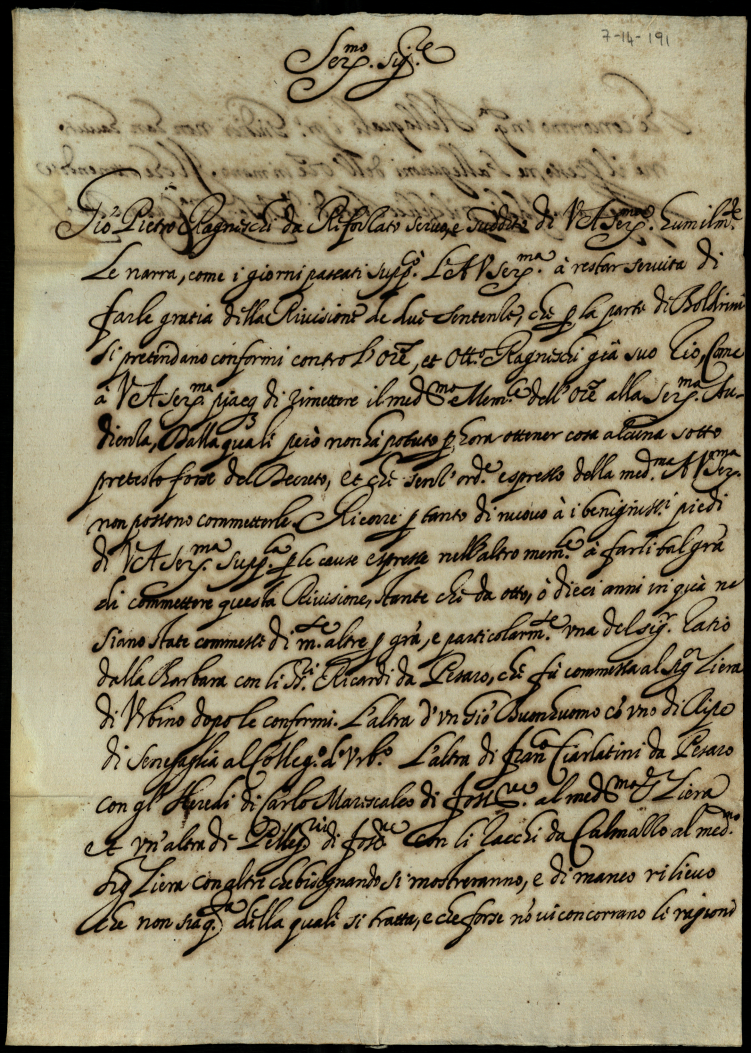 7-14-191
Ser.mo Sig.re
Gio: Pietro Ragneschi da Riforzato servo, e suddito di V A Ser.ma humilm.te
Le narra, come i giorni passati supp.cò L'A V Ser.ma à restar servita di
farle gratia della Rivisione de due sentenze, che p la parte di Boldrini
si pretendano conformi contro l'Or.e, et Ott.o Ragneschi già suo Zio, Come
à V A Ser.ma piacq di rimettere il med.mo Mem.le dell'Or.e alla Ser.ma Au-
dienza, Dalla quali però non hà potuto p hora ottener cosa alcuna sotto
pretesto forse del Decreto, et che senz'ord.e espresso della med.ma A V Ser.ma
non possono commetterle. Ricorre p tanto di nuovo à i benigniss.i piedi
di V A Ser.ma supp.la p le cause espresse nell'altro mem.le à farli tal grã
di commettere questa Rivisione, stante che da otto, ò dieci anni in quà ne
siano state commesse di m.te altre p grã, e particolarm.te una del sig.r Latio
dalla Barbara con li SS.ri Ricardi da Pesaro, che fù commessa al Sig.r Ziera
di Urbino dopo le conformi. L'altra d'un Gio: Buonhuomo cõ uno di Ripe
di Senegaglia al Colleg.o d'Urb.o L'altra di Fran.co Ciarlatini da Pesaro
con gl'Heredi di Carlo Mariscalco di foss.ne al med.mo S.r Ziera
et un'altra de Pelleg.ni di foss.ne con li Zacchi da Calmazzo al med.mo
Sig.r Ziera con altre che bisognando si mostreranno, e di manco rilievo
che non sia q.ta della quali si tratta, e che forse nõ vi concorrano le ragioni